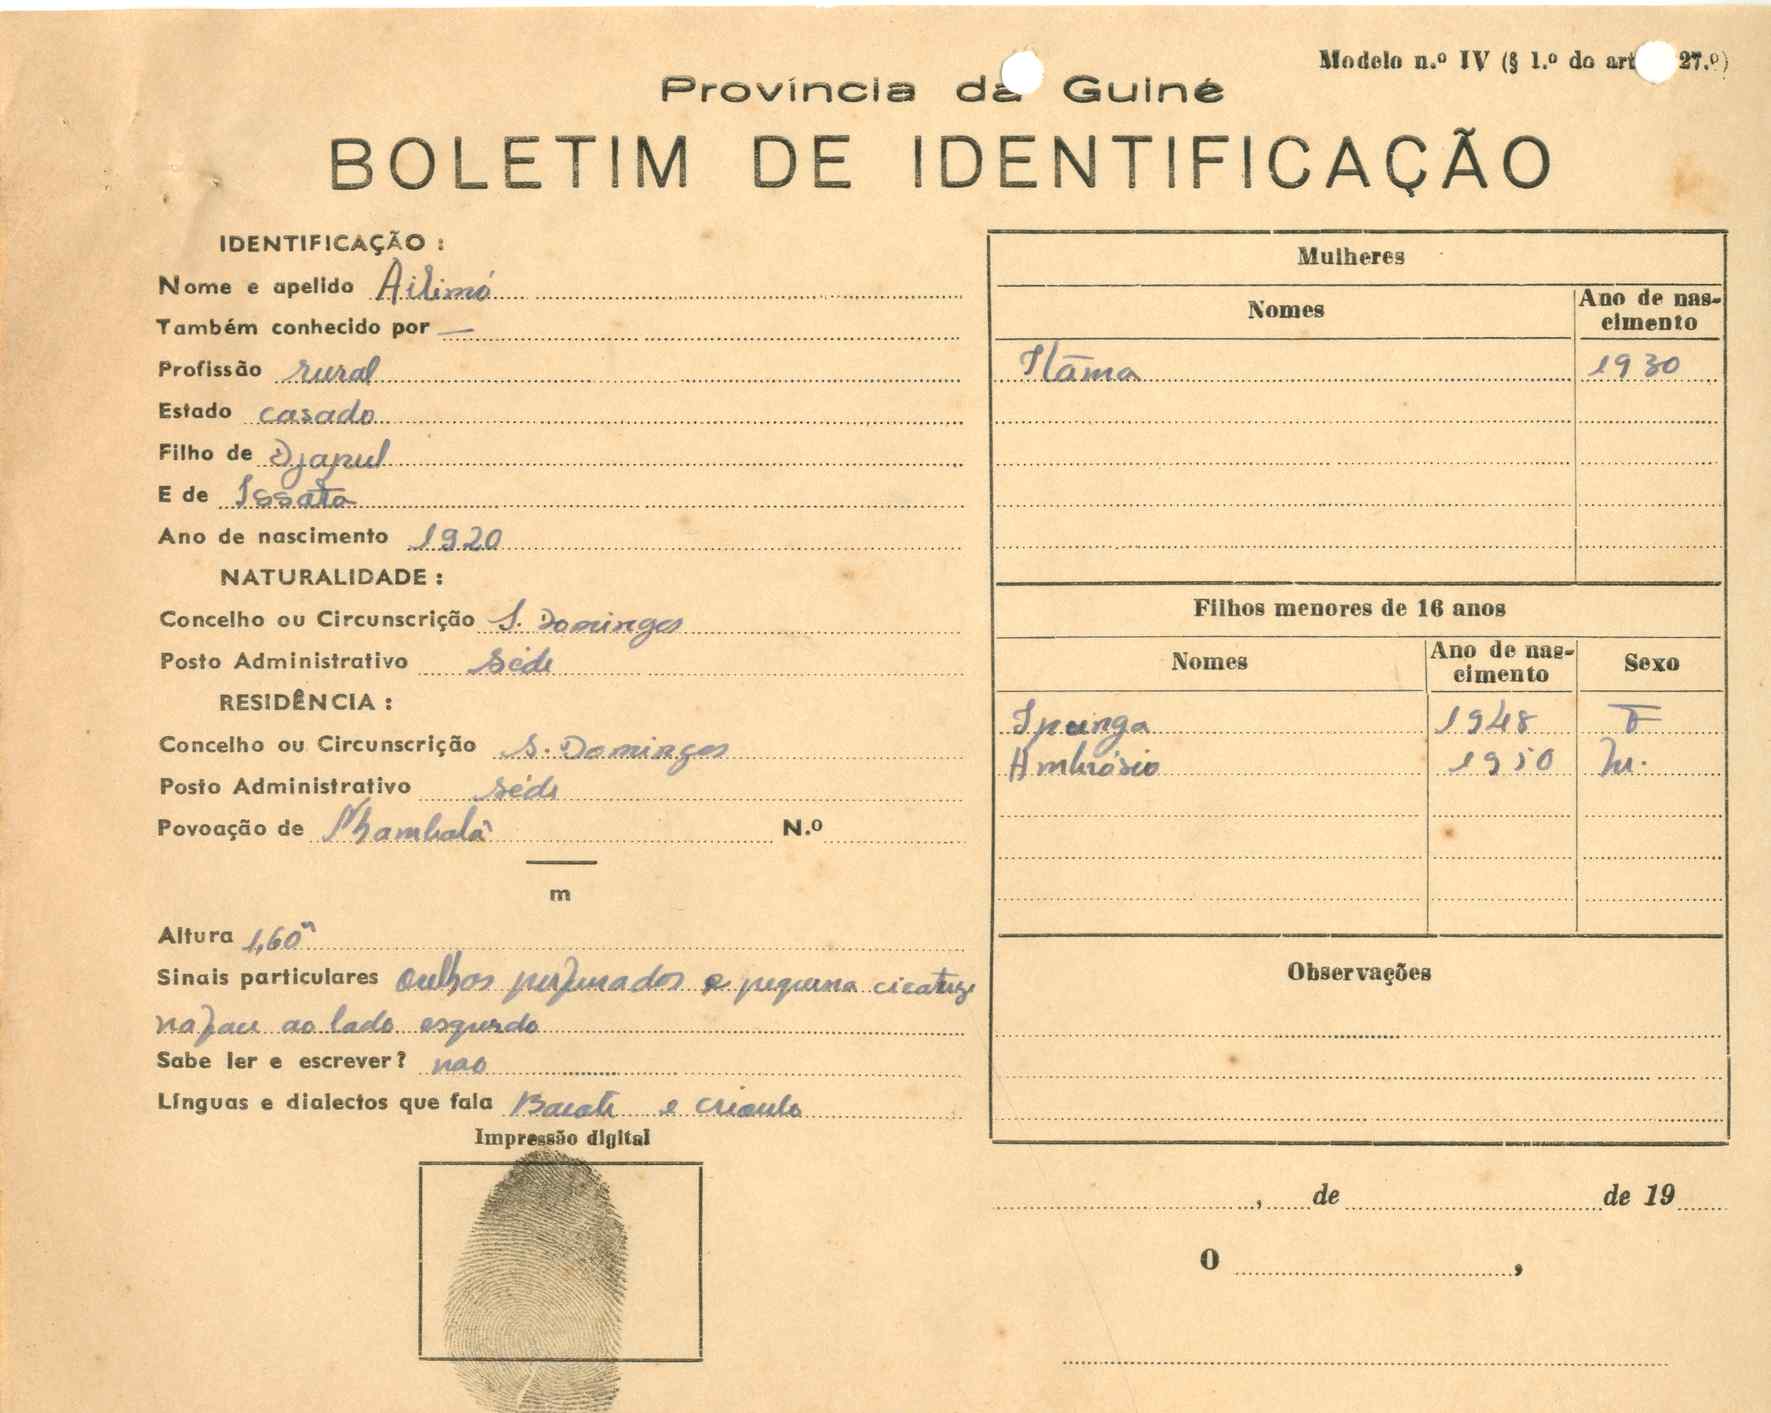 Modelo n.º IV (§ 1.º do art 27.º)
Província da Guiné
BOLETIM DE IDENTIFICAÇÃO
IDENTIFICAÇÃO :
Nome e apelido Ailimó
Também conhecido por —
Profissão rural
Estado casado
Filho de Djapul
E de Issata
Ano de nascimento 1920
NATURALIDADE :
Concelho ou Circunscrição S. Domingos
Posto Administrativo séde
RESIDÊNCIA :
Concelho ou Circunscrição S. Domingos
Posto Administrativo séde
Povoação de N.º
m
Altura 1,60m
Sinais particulares perfurados e pequena cicatriz
na face ao lado esqurdo
Sabe ler e escrever? nao
Línguas e dialectos que fala e crioulo
Impressão digital
Mulheres
Nomes Ano de nas-
cimento
1930
Filhos menores de 16 anos
Nomes Ano de nas-
cimento Sexo
Ipunga 1948 F
Ambrósio 1950 M.
Observações
, de de 19
O ,